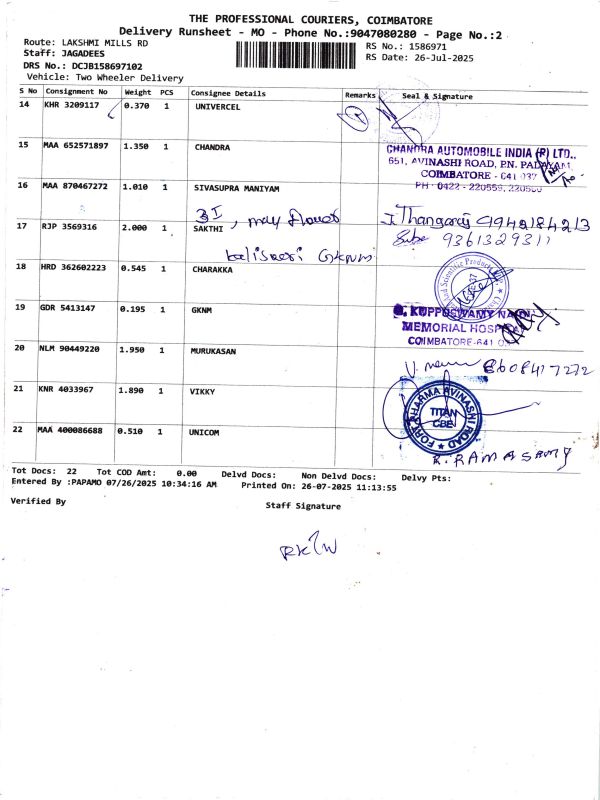 THE PROFESSIONAL COURIERS, COIMBATORE
Delivery Runsheet - MO - Phone No.:9047080280 - Page No.:2
Route: LAKSHMI MILLS RD
RS No.: 1586971
Staff: JAGADEES
RS Date: 26-Jul-2025
DRS No.: DCJB158697102
Vehicle: Two Wheeler Delivery
S No Consignment No Weight PCS Consignee Details Remarks Seal & Signature
14 KHR 3209117 0.370 1 UNIVERCEL
15 MAA 652571897 1.350 1 CHANDRA
CHANDRA AUTOMOBILE INDIA (P) LTD.,
651, AVINASHI ROAD, P.N. PALAYAM,
COIMBATORE - 641 037
PH : 0422 - 220559,
16 MAA 870467272 1.010 1 SIVASUPRA MANIYAM
3I, may flower
J. Thangaraj 9942184213
17 RJP 3569316 2.000 1 SAKTHI
9361329311
GKNM
18 HRD 362602223 0.545 1 CHARAKKA
19 GDR 5413147 0.195 1 GKNM
G. KUPPUSWAMY NAIDU
MEMORIAL HOSPITAL
COIMBATORE-641 0
20 NLM 90449220 1.950 1 MURUKASAN
8608417272
21 KNR 4033967 1.890 1 VIKKY
FORT PHARMA AVINASHI ROAD
TITAN
CBE
22 MAA 400086688 0.510 1 UNICOM
R. RAMASAMY
Tot Docs: 22 Tot COD Amt: 0.00 Delvd Docs: Non Delvd Docs: Delvy Pts:
Entered By :PAPAMO 07/26/2025 10:34:16 AM Printed On: 26-07-2025 11:13:55
Verified By
Staff Signature